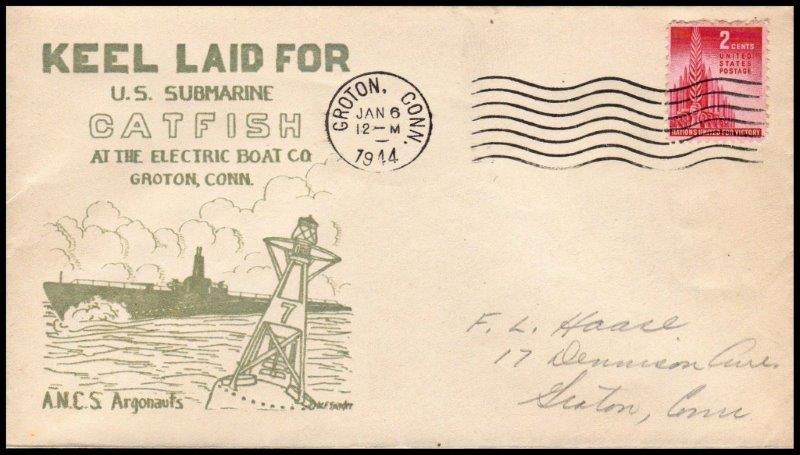 KEEL LAID FOR
U.S. SUBMARINE
CATFISH
AT THE ELECTRIC BOAT CO
GROTON, CONN.
7
A.N.C.S. Argonauts
GROTON, CONN.
JAN 6
12—M
1944
2 CENTS
UNITED
STATES
POSTAGE
NATIONS UNITED FOR VICTORY
F. L. Haase
17 Dennison Ave.
Groton, Conn